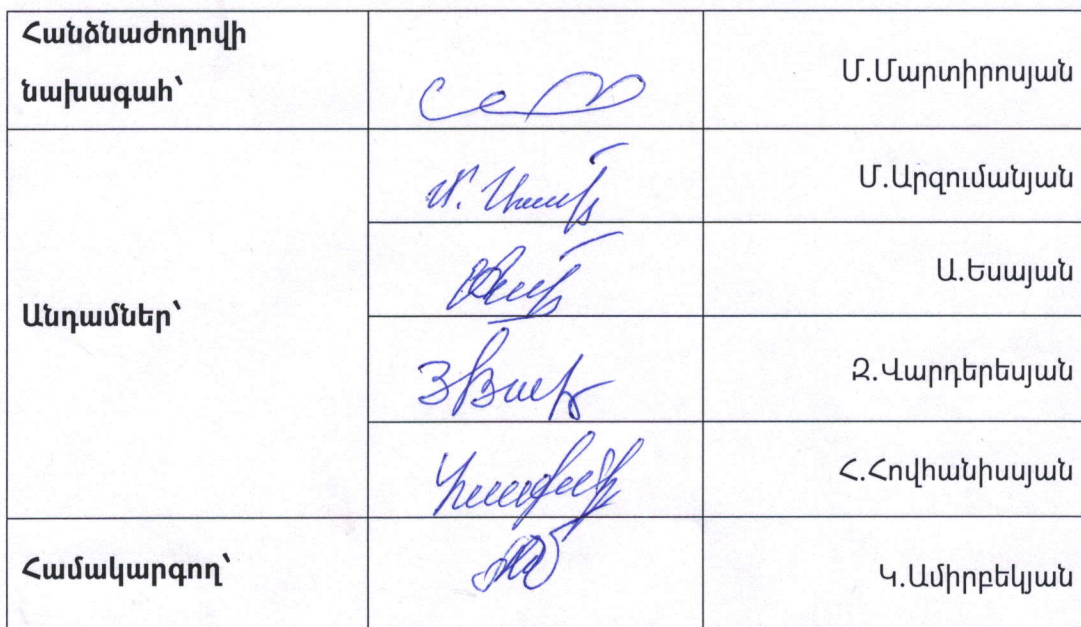 Հանձնաժողովի
նախագահ՝
Մ.Մարտիրոսյան
Անդամներ՝
Մ.Արզումանյան
Ա.Եսայան
Զ.Վարդերեսյան
Հ.Հովհանիսսյան
Համակարգող՝
Կ.Ամիրբեկյան